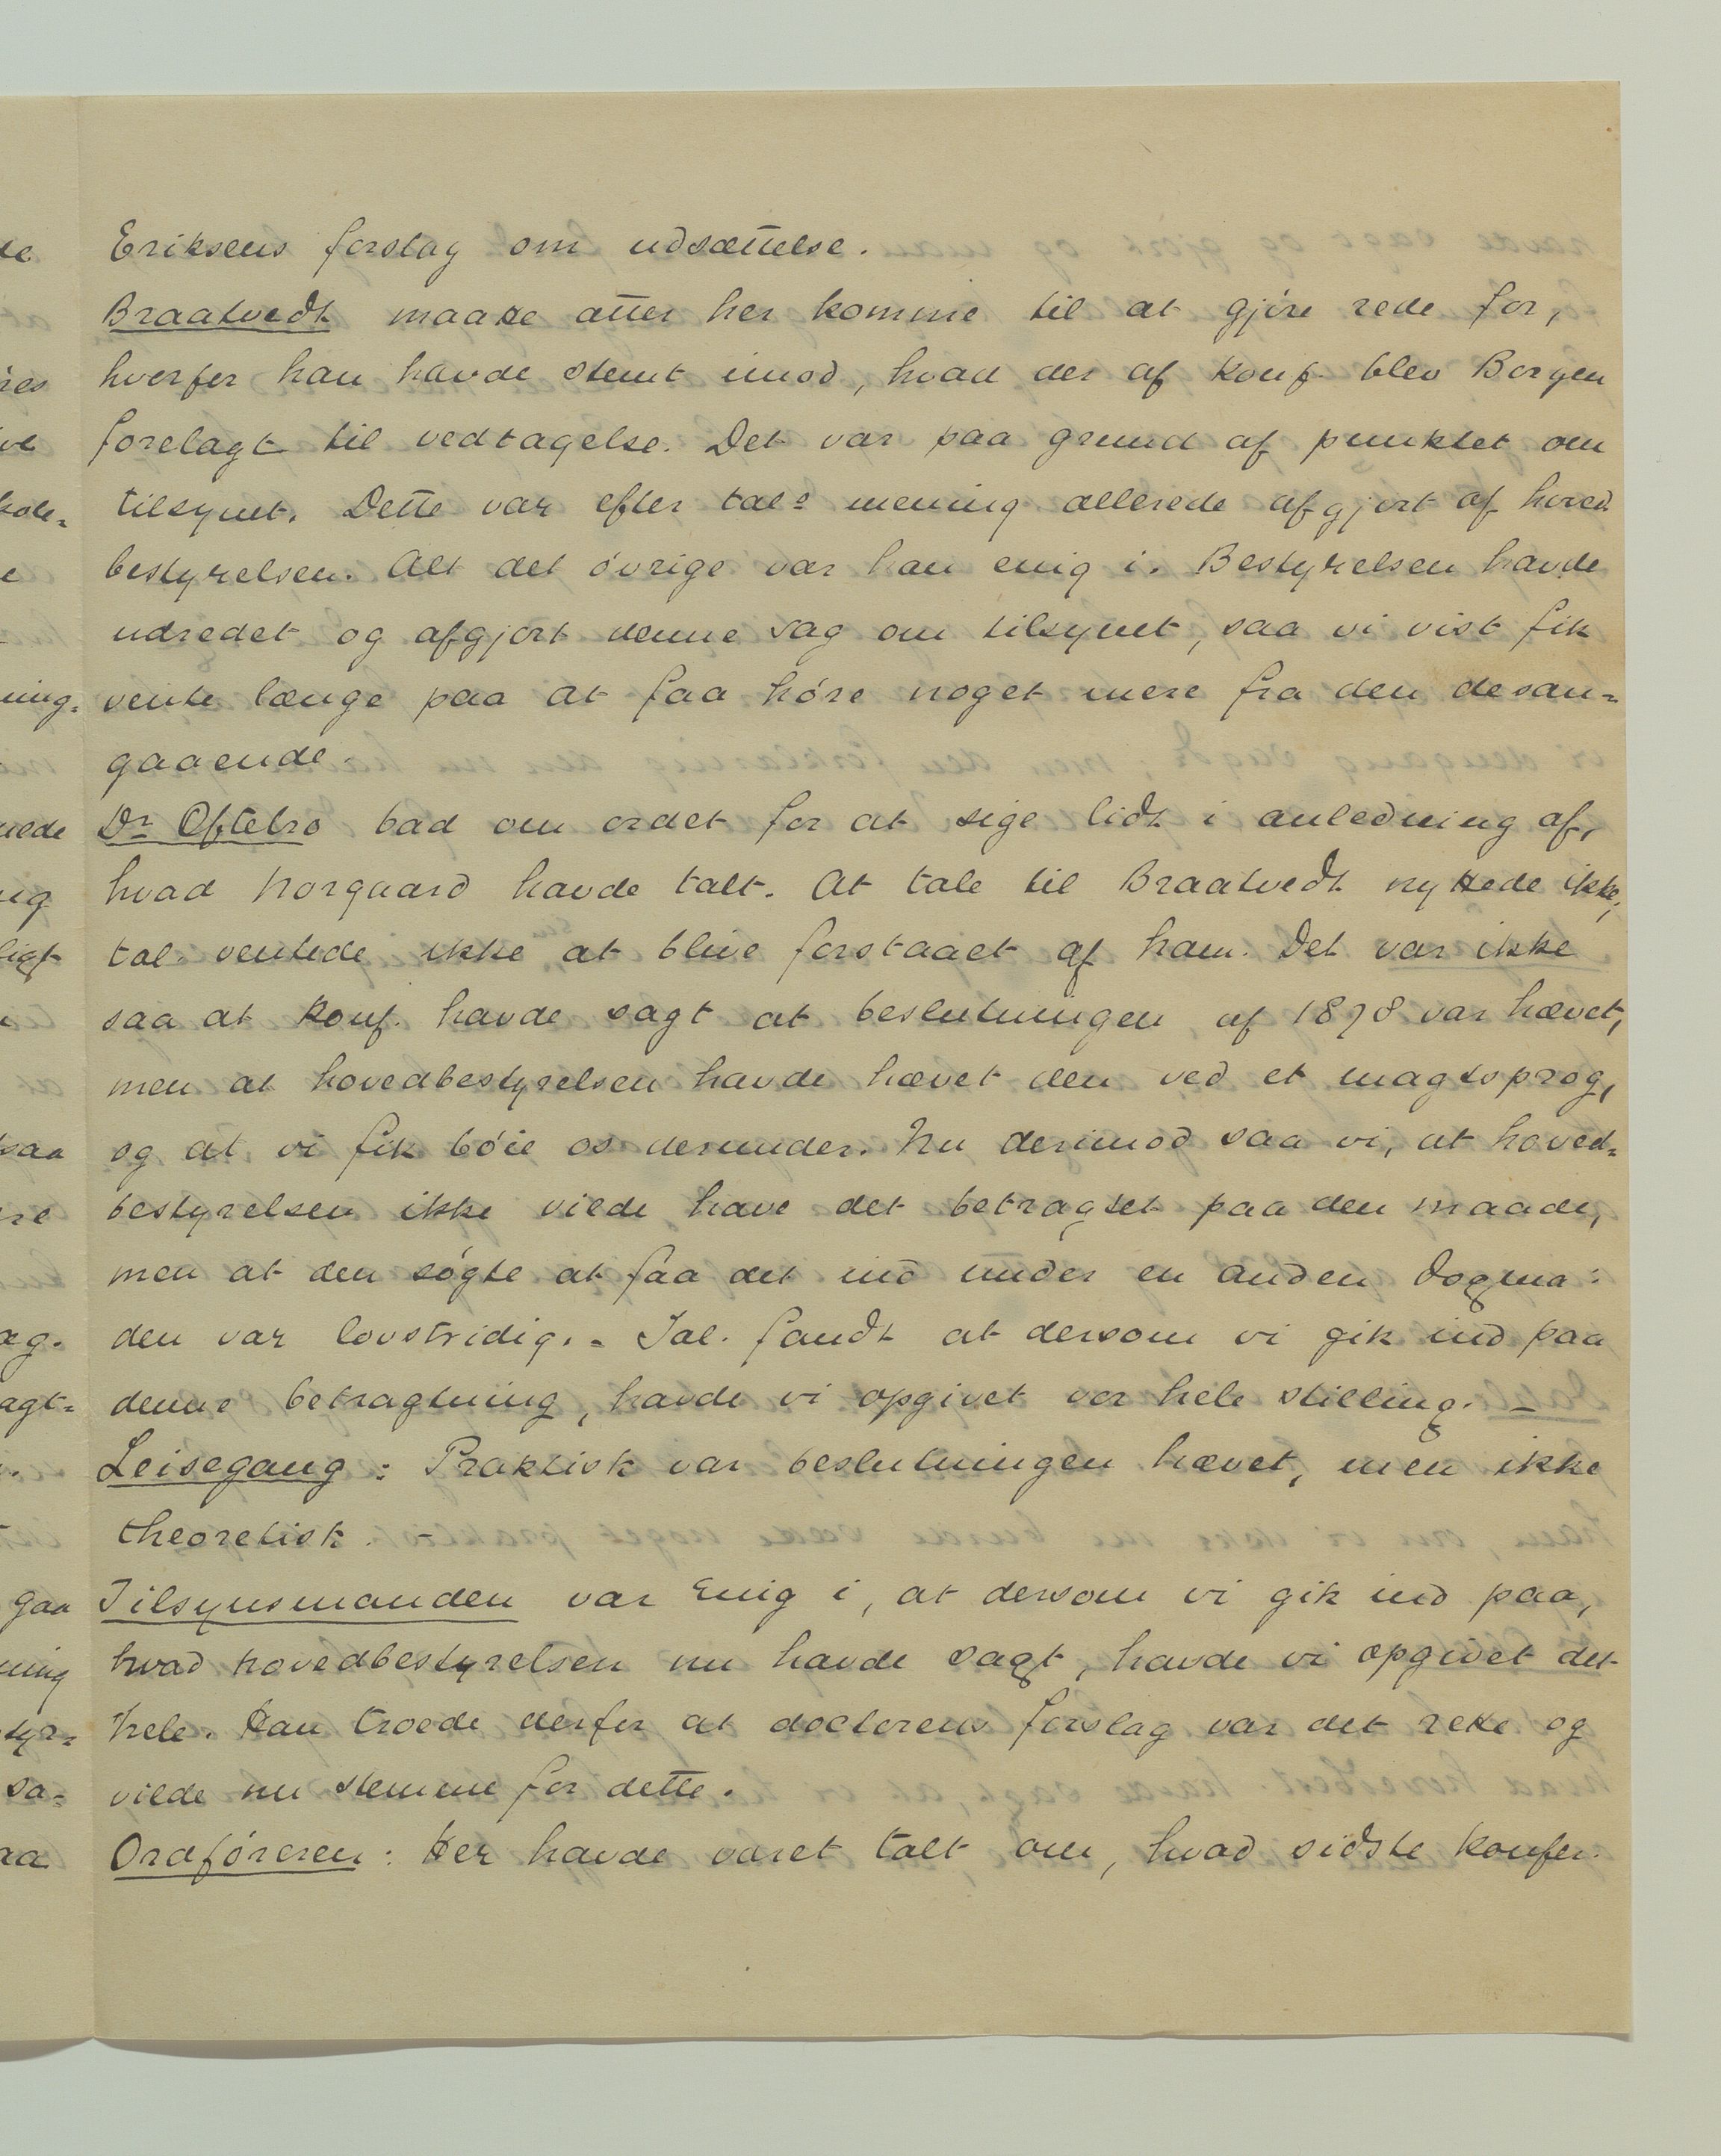 Eriksens forslag om udsættelse.
Braatvedt maatte atter her komme til at gjøre rede for,
hvorfor han havde stemt imod, hvad der af konf. blev Borgen
forelagt til vedtagelse. Det var paa grund af punktet om
tilsynet. Dette var efter tals mening allerede afgjort af hoved
bestyrelsen. Alt det øvrige var han enig i. Bestyrelsen havde
udredet og afgjort denne sag om tilsynet, saa vi vist fik
vente længe paa at faa høre noget mere fra den desan-
gaaende.
Dr Oftebro bad om ordet for at sige lidt i anledning af,
hvad Norgaard havde talt. At tale til Braatvedt nyttede ikke,
tal. ventede ikke at blive forstaaet af ham. Det var ikke
saa at konf. havde sagt at beslutningen af 1878 var hævet,
men at hovedbestyrelsen havde hævet den ved et magtsprog,
og at vi fik bøie os derunder. Nu derimod saa vi, at hoved-
bestyrelsen ikke vilde have det betragtet paa den maade,
men at den søgte at faa det ind under en anden Dogma:
den var lovstridig. - Tal. fandt at dersom vi gik ind paa
denne betragtning, havde vi opgivet vor hele stilling. -
Leisegang: Praktisk var beslutningen hævet, men ikke
theoretisk. -
Tilsynsmanden var Enig i, at dersom vi gik ind paa,
hvad hovedbestyrelsen nu havde sagt, havde vi opgivet det
hele. Han troede derfor at doctorens forslag var det rette og
vilde nu stemme for dette.
Ordføreren: Her havde været talt om, hvad sidste konfer.